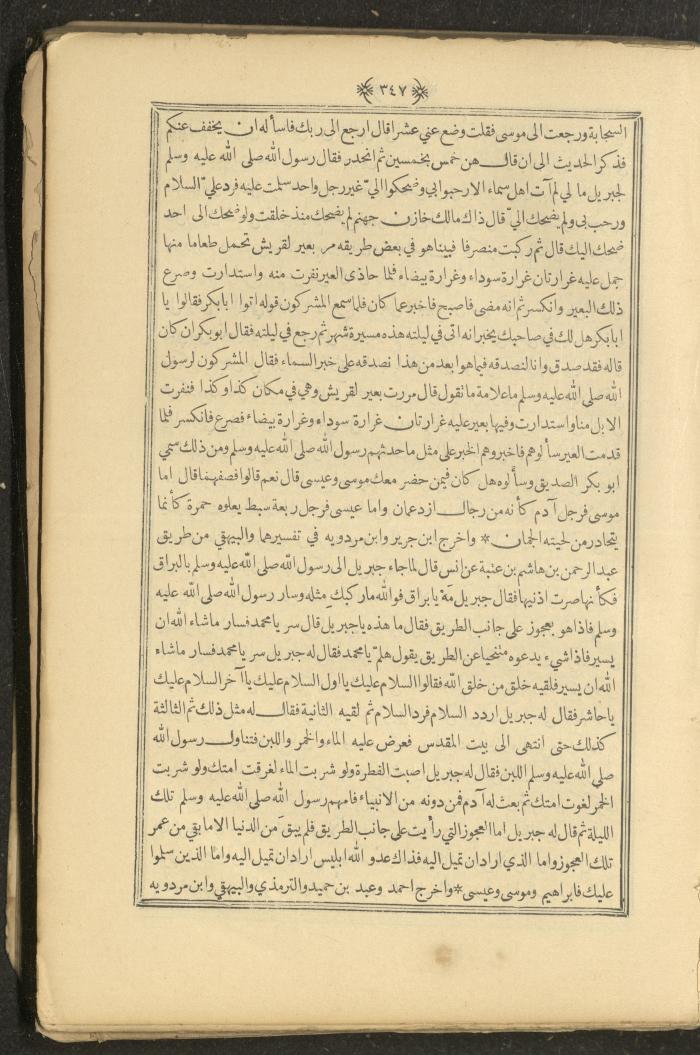 ٣٤٧
السحابة ورجعت الى موسى فقلت وضع عني عشرا قال ارجع الى ربك فاسأله ان يخفف عنكم
فذكر الحديث الى ان قال هن خمس بخمسين ثم انحدر فقال رسول الله صلى الله عليه وسلم
لجبريل ما لي لم آت اهل سماء الا رحبوا بي وضحكوا اليّ غير رجل واحد سلمت عليه فرد عليّ السلام
ورحب بي ولم يضحك اليّ قال ذاك مالك خازن جهنم لم يضحك منذ خلقت ولو ضحك الى احد
ضحك اليك قال ثم ركبت منصرفا فبينا هو في بعض طريقه مر بعير لقريش تحمل طعاما منها
جمل عليه غرارتان غرارة سوداء وغرارة بيضاء فلما حاذى العير نفرت منه واستدارت وصرع
ذلك البعير وانكسر ثم انه مضى فاصبح فاخبر عما كان فلما سمع المشركون قوله اتوا ابا بكر فقالوا يا
ابا بكر هل لك في صاحبك يخبر انه اتى في ليلته هذه مسيرة شهر ثم رجع في ليلته فقال ابو بكر ان كان
قاله فقد صدق وانا لنصدقه فيما هو ابعد من هذا نصدقه على خبر السماء فقال المشركون لرسول
الله صلى الله عليه وسلم ما علامة ما تقول قال مررت بعير لقريش وهي في مكان كذا وكذا فنفرت
الابل منا واستدارت وفيها بعير عليه غرارتان غرارة سوداء وغرارة بيضاء فصرع فانكسر فلما
قدمت العير سألوهم فاخبروهم الخبر على مثل ما حدثهم رسول الله صلى الله عليه وسلم ومن ذلك سمي
ابو بكر الصديق وسألوه هل كان فيمن حضر معك موسى وعيسى قال نعم قالوا فصفهما قال اما
موسى فرجل آدم كأنه من رجال ازدعمان واما عيسى فرجل ربعة سبط يعلوه حمرة كأنما
يتحادر من لحيته الجمان * واخرج ابن جرير وابن مردويه في تفسيرهما والبيهقي من طريق
عبد الرحمن بن هاشم بن عتبة عن انس قال لما جاء جبريل الى رسول الله صلى الله عليه وسلم بالبراق
فكأنها صرت اذنيها فقال جبريل مَهْ يا براق فوالله ما ركبك مثله وسار رسول الله صلى الله عليه
وسلم فاذا هو بعجوز على جانب الطريق فقال ما هذه يا جبريل قال سر يا محمد فسار ماشاء الله ان
يسير فاذا شيء يدعوه متنحيا عن الطريق يقول هلمّ يا محمد فقال له جبريل سر يا محمد فسار ماشاء
الله ان يسير فلقيه خلق من خلق الله فقالوا السلام عليك يا اول السلام عليك يا آخر السلام عليك
يا حاشر فقال له جبريل اردد السلام فرد السلام ثم لقيه الثانية فقال له مثل ذلك ثم الثالثة
كذلك حتى انتهى الى بيت المقدس فعرض عليه الماء والخمر واللبن فتناول رسول الله
صلى الله عليه وسلم اللبن فقال له جبريل اصبت الفطرة ولو شربت الماء لغرقت امتك ولو شربت
الخمر لغوت امتك ثم بعث له آدم فمن دونه من الانبياء فامهم رسول الله صلى الله عليه وسلم تلك
الليلة ثم قال له جبريل اما العجوز التي رأيت على جانب الطريق فلم يبق من الدنيا الا ما بقي من عمر
تلك العجوز واما الذي اراد ان تميل اليه فذاك عدو الله ابليس اراد ان تميل اليه واما الذين سلموا
عليك فابراهيم وموسى وعيسى * واخرج احمد وعبد بن حميد والترمذي والبيهقي وابن مردويه